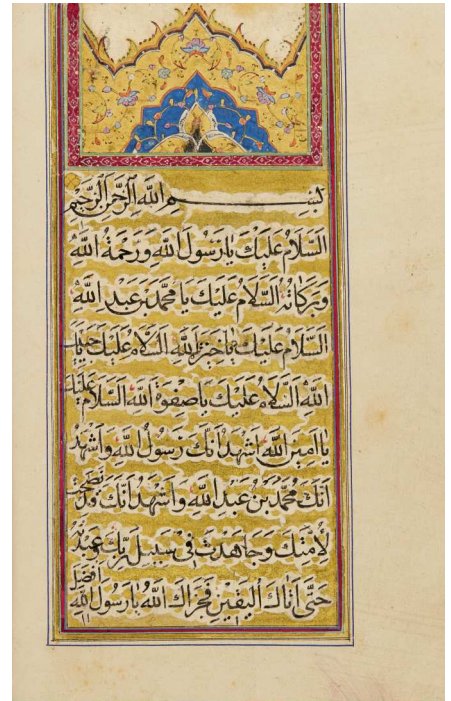 بِسْمِ اللَّهِ الرَّحْمٰنِ الرَّحِيْمِ
اَلسَّلَامُ عَلَيْكَ يَا رَسُولَ اللَّهِ وَرَحْمَةُ اللَّهِ
وَبَرَكَاتُهُ اَلسَّلَامُ عَلَيْكَ يَا مُحَمَّدَ بْنَ عَبْدِ اللَّهِ
اَلسَّلَامُ عَلَيْكَ يَا خِيَرَةَ اللَّهِ اَلسَّلَامُ عَلَيْكَ يَا حَبِيبَ
اللَّهِ اَلسَّلَامُ عَلَيْكَ يَا صَفْوَةَ اللَّهِ اَلسَّلَامُ عَلَيْكَ
يَا اَمِينَ اللَّهِ اَشْهَدُ اَنَّكَ رَسُولُ اللَّهِ وَاَشْهَدُ
اَنَّكَ مُحَمَّدُ بْنُ عَبْدِ اللَّهِ وَاَشْهَدُ اَنَّكَ قَدْ نَصَحْتَ
لِاُمَّتِكَ وَجَاهَدْتَ فِى سَبِيلِ رَبِّكَ وَعَبَدْتَهُ
حَتّٰى اَتَاكَ الْيَقِينُ فَجَزَاكَ اللَّهُ يَا رَسُولَ اللَّهِ اَفْضَلَ